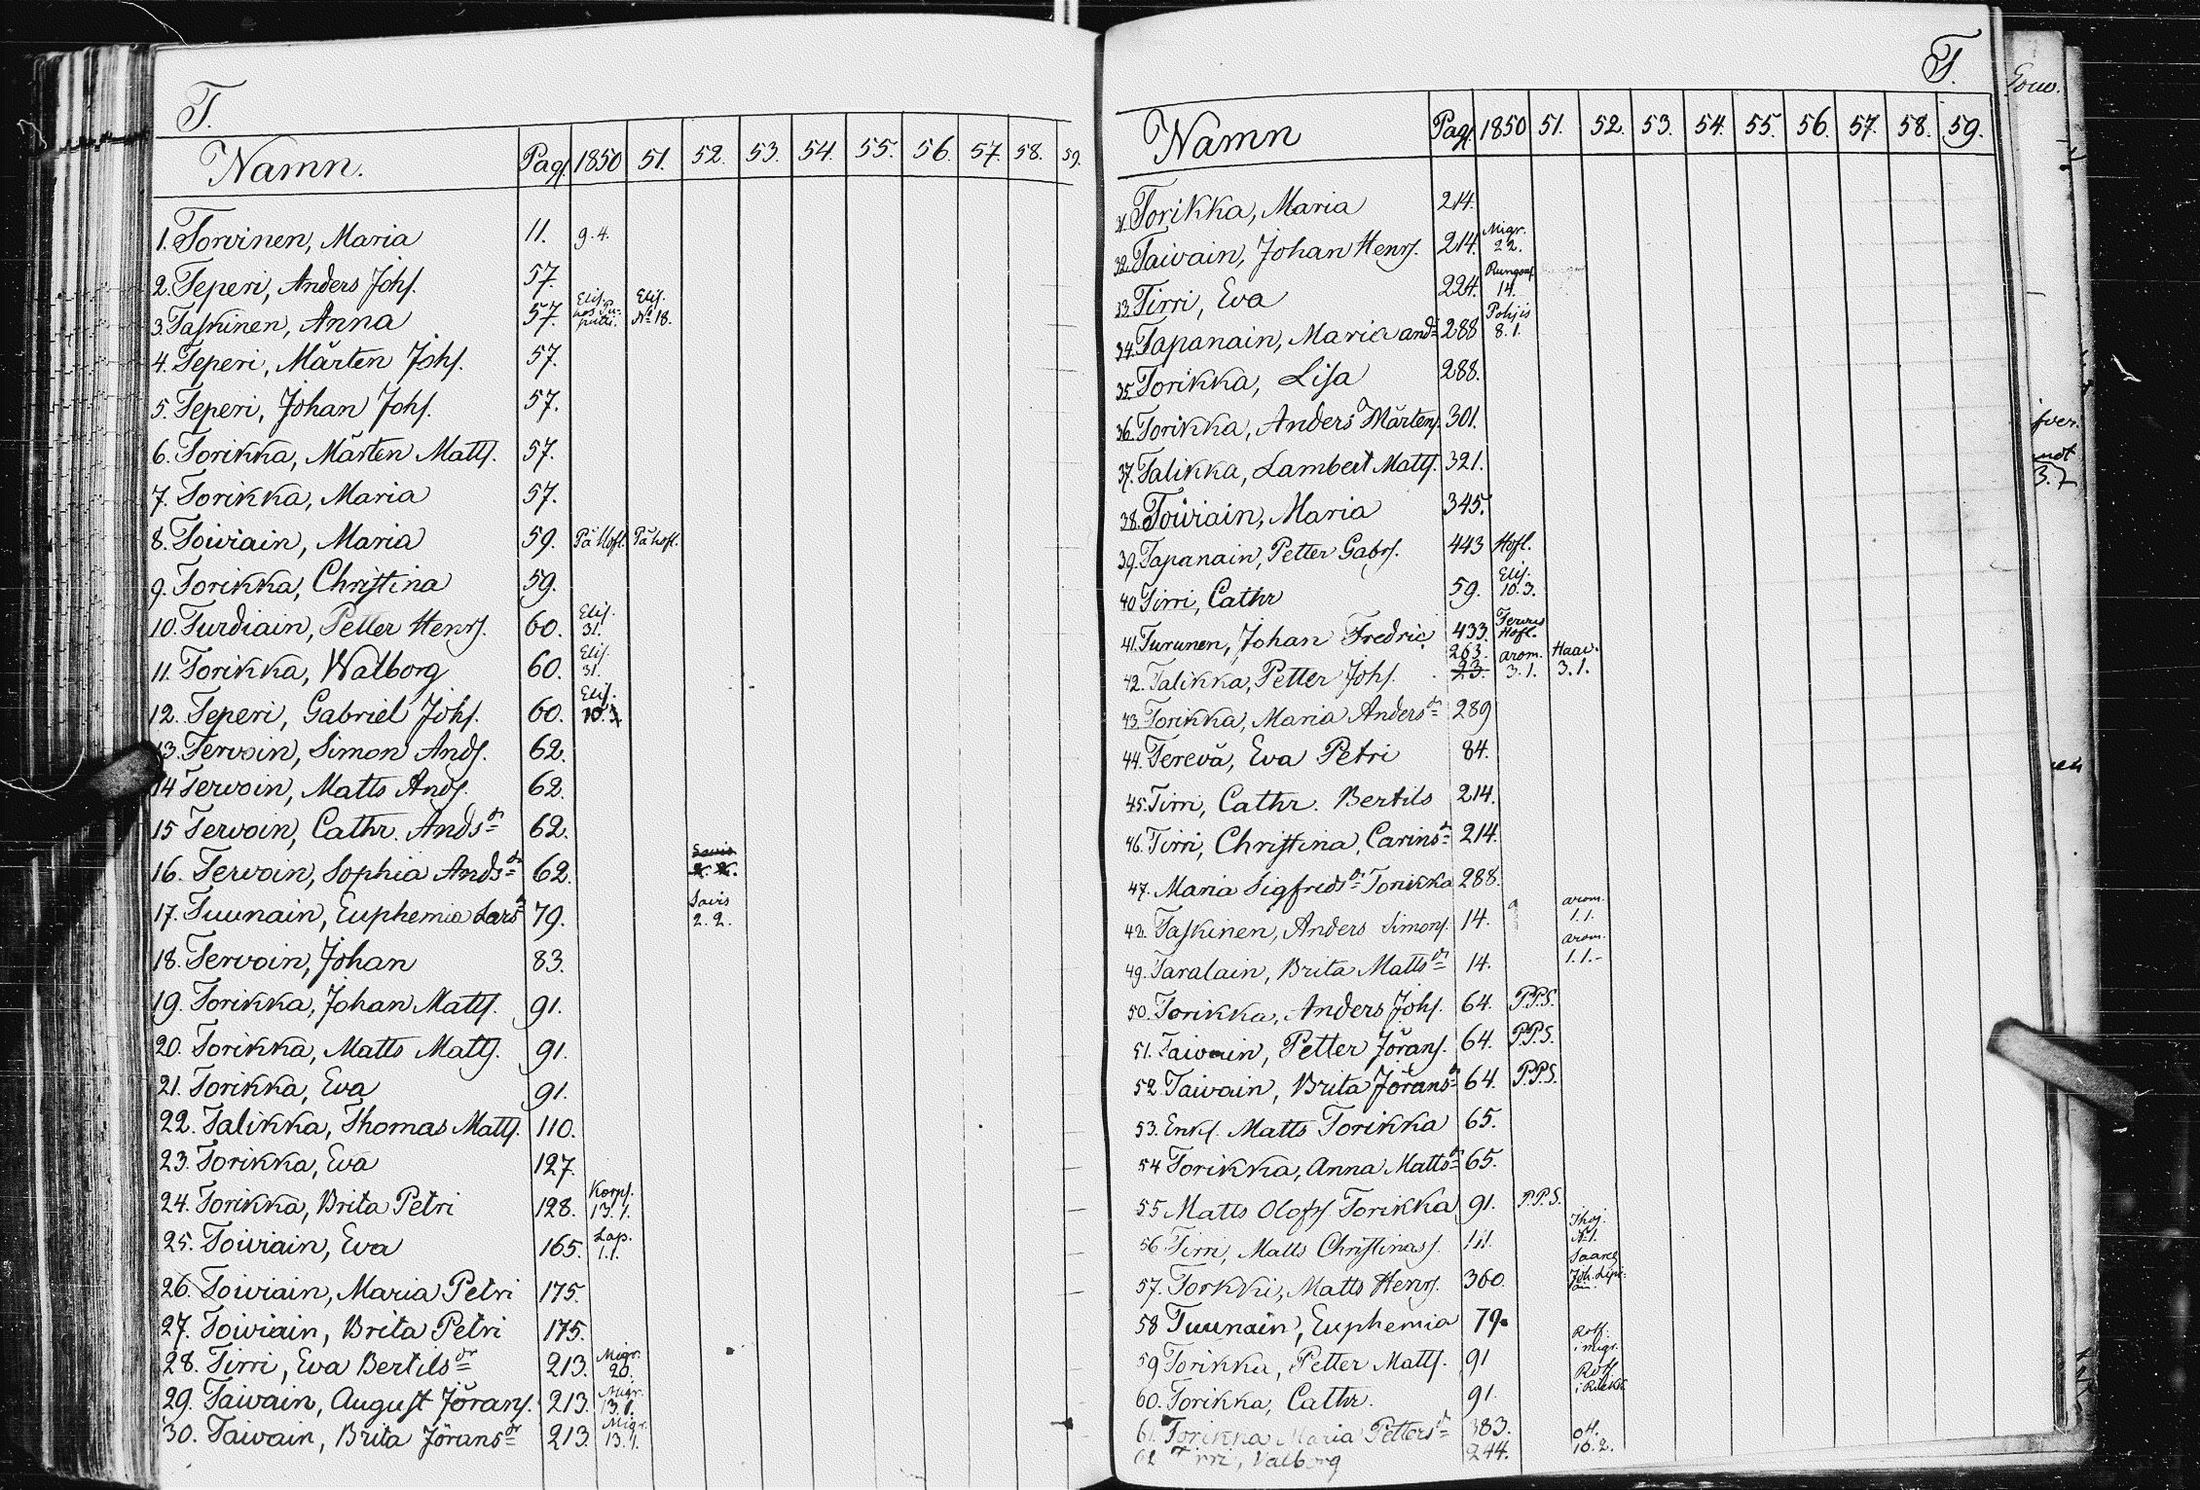 T.
Namn. Pag. 1850 51. 52. 53. 54. 55. 56. 57. 58. 59.
1. Torvinen, Maria 11. 9.4.
2. Teperi, Anders Johs. 57.
3. Taskinen, Anna 57. Elis. hos Elis. No 18.
4. Teperi, Mårten Johs. 57.
5. Teperi, Johan Johs. 57.
6. Torikka, Mårten Matts. 57.
7. Torikka, Maria 57.
8. Toiviain, Maria 59. På Hofl. På hofl.
9. Torikka, Christina 59.
10. Turdiain, Petter Henrs. 60. Elis. 31.
11. Torikka, Walborg 60. Elis. 31.
12. Teperi, Gabriel Johs. 60. Elis. 10.
13. Tervoin, Simon Ands. 62.
14 Tervoin, Matts Ands. 62.
15 Tervoin, Cathr. Ands dr 62.
16. Tervoin, Sophia Ands dr 62.
17. Tuunain, Euphemia Lars dr 79. Savis 2. 2.
18. Tervoin, Johan 83.
19. Torikka, Johan Matts. 91.
20. Torikka, Matts Matts. 91.
21. Torikka, Eva 91.
22. Talikka, Thomas Matts. 110.
23. Torikka, Eva 127.
24. Torikka, Brita Petri 128. Korps. 13. 1.
25. Toiviain, Eva 165. Lap. 1.1.
26. Toiviain, Maria Petri 175.
27. Toiviain, Brita Petri 175.
28. Tirri, Eva Bertils dr 213. Migr. 20.
29. Taivain, August Jörans. 213. Migr. 13.1.
30. Taivain, Brita Jörans dr 213. Migr. 13.1.
T.
Namn Pag. 1850 51. 52. 53. 54. 55. 56. 57. 58. 59.
Torikka, Maria 214.
32. Taivain, Johan Henrs. 214. Migr. 22.
33. Tirri, Eva 224. 14.
34. Tapanain, Maria and dr 288 Pohjis 8.1.
35. Torikka, Lisa 288.
36. Torikka, Anders Mårtens. 301.
37. Talikka, Lambert Matts. 321.
38. Toiviain, Maria 345.
39. Tapanain, Petter Gabrs. 443 Hofl.
40 Tirri, Cathr 59. Elis. 10.3.
41. Turunen, Johan Fredric 433. Hofl.
42. Talikka, Petter Johs. 263. 23. arom. 3.1. Haav. 3.1.
43. Torikka, Maria Anders dr 289
44. Terevä, Eva Petri 84.
45. Tirri, Cathr. Bertils 214.
46. Tirri, Christina, Carins dr 214.
47. Maria Sigfrids dr Torikka 288.
48. Taskinen, Anders Simons. 14. arom. 1.1.
49. Taralain, Brita Matts dr 14. arom. 1.1.-
50. Torikka, Anders Johs. 64. P.P.S.
51. Taivain, Petter Jörans. 64. P.P.S.
52. Taivain, Brita Jörans dr 64. P.P.S.
53. Enk. Matts Torikka 65.
54 Torikka, Anna Matts dr 65.
55 Matts Olofs Torikka 91. P.P.S.
56. Tirri, Matts Christinas. 111.
57. Torkki, Matts Henrs. 360.
58 Tuunain, Euphemia 79.
59 Torikka, Petter Matts. 91 i migr.
60. Torikka, Cathr. 91.
61. Torikka Maria Petters dr 383.
62 Tirri, Valborg 244. 10.2.